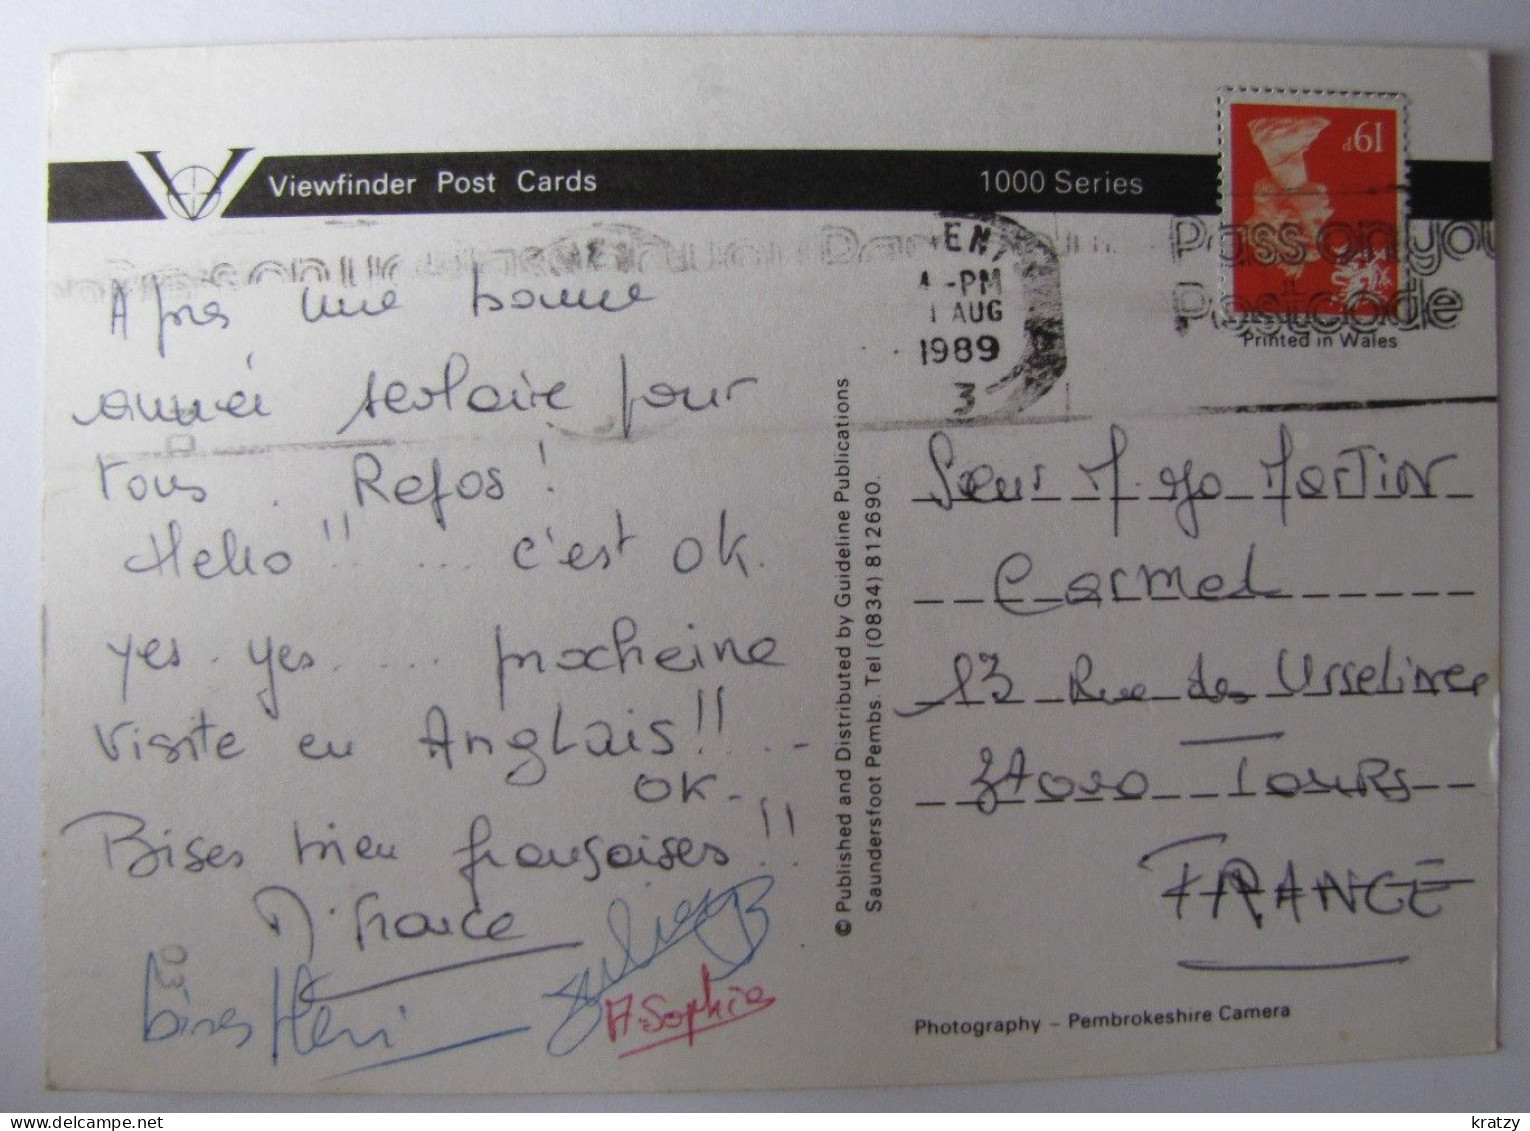 Viewfinder Post Cards
1000 Series
19P
EN,
4-PM
1 AUG
1989
3
Pass on you
Postcode
Printed in Wales
Après une bonne
année scolaire pour
tous. Repos !
Hello !! .... c'est OK.
yes. yes..... procheine
visite en Anglais !! ...
OK...
Bises bien françaises !!
M. France
bises Henri
A-Sophie
© Published and Distributed by Guideline Publications
Saundersfoot Pembs. Tel (0834) 812690.
Sœur M. Jo Martin
Carmel
13 Rue des Ursulines
37000 Tours
FRANCE
Photography – Pembrokeshire Camera
03
kratzy